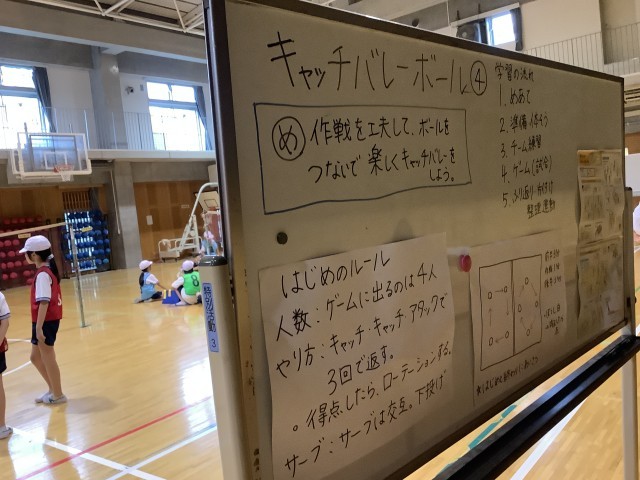 キャッチバレーボール④
め 作戦を工夫して、ボールを
つないで楽しくキャッチバレーを
しよう。
学習の流れ
1. めあて
2. 準備・体そう
3. チーム練習
4. ゲーム(試合)
5. ふり返り・片付け
整理運動
はじめのルール
人数:ゲームに出るのは4人
やり方:キャッチ・キャッチ アタックで
3回で返す。
。得点したら、ローテーションする。
サーブ:サーブは交互。下投げ
3